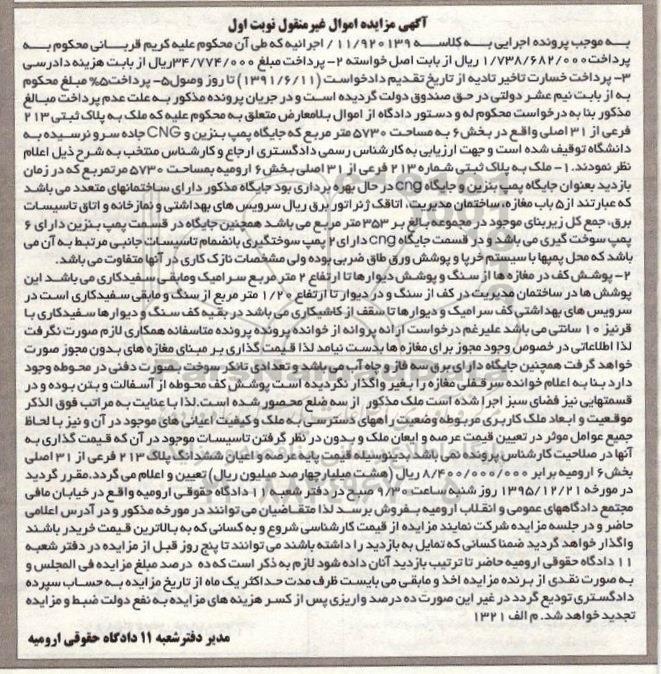 آگهی مزایده اموال غیرمنقول نوبت اول
به موجب پرونده اجرایی به کلاسه ۱۱/۹۲۰۱۳۹ / اجرائیه که طی آن محکوم علیه کریم قربانی محکوم به
پرداخت ۱/۷۳۸/۶۸۲/۰۰۰ ریال از بابت اصل خواسته ۲- پرداخت مبلغ ۳۴/۷۷۴/۰۰۰ ریال از بابت هزینه دادرسی
۳- پرداخت خسارت تاخیر تادیه از تاریخ تقدیم دادخواست (۱۳۹۱/۶/۱۱) تا روز وصول ۵- پرداخت ۵% مبلغ محکوم
به از بابت نیم عشر دولتی در حق صندوق دولت گردیده است و در جریان پرونده مذکور به علت عدم پرداخت مبالغ
مذکور بنا به درخواست محکوم له و دستور دادگاه از اموال بلامعارض متعلق به محکوم علیه که ملک به پلاک ثبتی ۲۱۳
فرعی از ۳۱ اصلی واقع در بخش ۶ به مساحت ۵۷۳۰ متر مربع که جایگاه پمپ بنزین و CNG جاده سرو نرسیده به
دانشگاه توقیف شده است و جهت ارزیابی به کارشناس رسمی دادگستری ارجاع و کارشناس منتخب به شرح ذیل اعلام
نظر نمودند. ۱- ملک به پلاک ثبتی شماره ۲۱۳ فرعی از ۳۱ اصلی بخش ۶ ارومیه بمساحت ۵۷۳۰ مرتمربع که در زمان
بازدید بعنوان جایگاه پمپ بنزین و جایگاه cng در حال بهره برداری بود جایگاه مذکور دارای ساختمانهای متعدد می باشد
که عبارتند از ۵ باب مغازه، ساختمان مدیریت، اتاقک ژنراتور برق ریال سرویس های بهداشتی و نمازخانه و اتاق تاسیسات
برق، جمع کل زیربنای موجود در مجموعه بالغ بر ۳۵۳ متر مربع می باشد همچنین جایگاه در قسمت پمپ بنزین دارای ۶
پمپ سوخت گیری می باشد و در قسمت جایگاه cng دارای ۲ پمپ سوختگیری بانضمام تاسیسات جانبی مرتبط به آن می
باشد که محل پمپها با سیستم خرپا و پوشش ورق طاق ضربی بوده ولی مشخصات نازک کاری در آنها متفاوت می باشد.
۲- پوشش کف در مغازه ها از سنگ و پوشش دیوارها تا ارتفاع ۲ متر مربع سرامیک ومابقی سفیدکاری می باشد این
پوشش ها در ساختمان مدیریت در کف از سنگ و در دیوار تا ارتفاع ۱/۲۰ متر مربع از سنگ و مابقی سفیدکاری است در
سرویس های بهداشتی کف سرامیک و دیوارها تا سقف از کاشیکاری می باشد در بقیه کف سنگ و دیوارها سفیدکاری با
قرنیز ۱۰ سانتی می باشد علیرغم درخواست ارائه پروانه از خوانده پرونده پرونده متاسفانه همکاری لازم صورت نگرفت
لذا اطلاعاتی در خصوص وجود مجوز برای مغازه ها بدست نیامد لذا قیمت گذاری بر مبنای مغازه های بدون مجوز صورت
خواهد گرفت همچنین جایگاه دارای برق سه فاز و چاه آب می باشد و تعدادی تانکر سوخت بصورت دفنی در محوطه وجود
دارد بنا به اعلام خوانده سرقفلی مغازه را بغیر واگذار نگردیده است پوشش کف محوطه از آسفالت و بتن بوده و در
قسمتهایی نیز فضای سبز اجرا شده است ملک مذکور از سه ضلع محصور شده است. لذا با عنایت به مراتب فوق الذکر
موقعیت و ابعاد ملک کاربری مربوطه وضعیت راههای دسترسی به ملک و کیفیت اعیانی های موجود در آن و نیز با لحاظ
جمیع عوامل موثر در تعیین قیمت عرصه و ایعان ملک و بدون در نظر گرفتن تاسیسات موجود در آن که قیمت گذاری به
آنها در صلاحیت کارشناس پرونده نمی باشد بدینوسیله قیمت پایه عرصه و اعیان ششدانگ پلاک ۲۱۳ فرعی از ۳۱ اصلی
بخش ۶ ارومیه برابر ۸/۴۰۰/۰۰۰/۰۰۰ ریال (هشت میلیارچهارصد میلیون ریال) تعیین و اعلام می گردد. مقرر گردید
در مورخه ۱۳۹۵/۱۲/۲۱ روز شنبه ساعت ۹/۳۰ صبح در دفتر شعبه ۱۱ دادگاه حقوقی ارومیه واقع در خیابان مافی
مجتمع دادگاههای عمومی و انقلاب ارومیه بفروش برسد لذا متقاضیان می توانند در مورخه مذکور و در آدرس اعلامی
حاضر و در جلسه مزایده شرکت نمایند مزایده از قیمت کارشناسی شروع و به کسانی که به بالاترین قیمت خریدار باشند
واگذار خواهد گردید ضمنا کسانی که تمایل به بازدید را داشته باشند می توانند تا پنج روز قبل از مزایده در دفتر شعبه
۱۱ دادگاه حقوقی ارومیه حاضر تا ترتیب بازدید آنان داده شود لازم به ذکر است که ده درصد مبلغ مزایده فی المجلس و
به صورت نقدی از برنده مزایده اخذ و مابقی می بایست ظرف مدت حداکثر یک ماه از تاریخ مزایده به حساب سپرده
دادگستری تودیع گردد در غیر این صورت ده درصد واریزی پس از کسر هزینه های مزایده به نفع دولت ضبط و مزایده
تجدید خواهد شد. م الف ۱۳۲۱
مدیر دفتر شعبه ۱۱ دادگاه حقوقی ارومیه